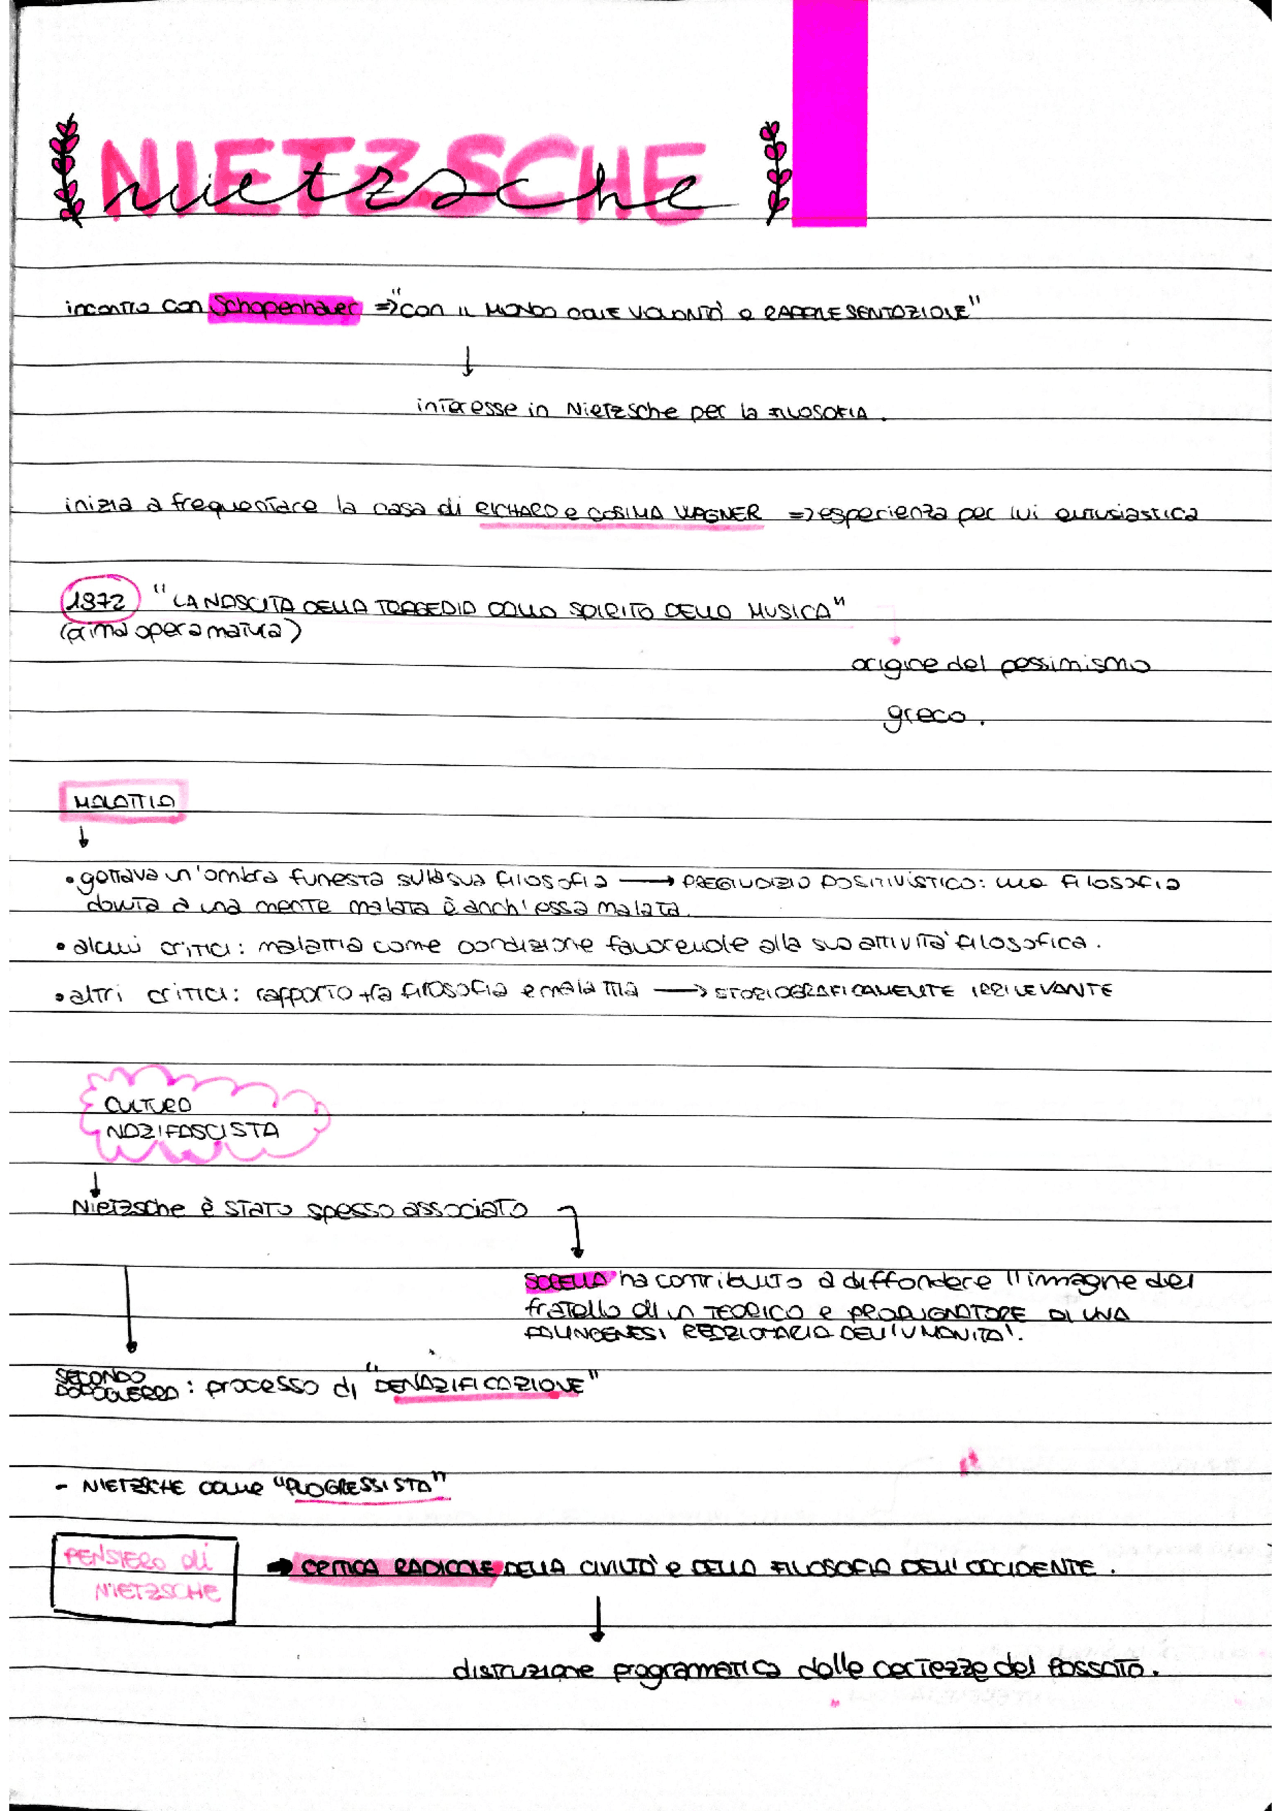 NIETZSCHE
nietzsche
incontro con Schopenhauer => "CON IL MONDO COME VOLONTÀ E RAPPRESENTAZIONE"
interesse in Nietzsche per la FILOSOFIA.
inizia a frequentare la casa di RICHARD e COSIMA WAGNER => esperienza per lui entusiastica
1872 "LA NASCITA DELLA TRAGEDIA DALLO SPIRITO DELLA MUSICA"
(prima opera matura)
origine del pessimismo
greco.
MALATTIA
• gettava un'ombra funesta sulla sua filosofia → PREGIUDIZIO POSITIVISTICO: una FILOSOFIA
dovuta a una mente malata è anch'essa malata.
• alcuni critici: malattia come condizione favorevole alla sua attività filosofica.
• altri critici: rapporto tra filosofia e malattia → STORIOGRAFICAMENTE IRRILEVANTE
CULTURA
NAZIFASCISTA
Nietzsche è stato spesso associato
SORELLA ha contribuito a diffondere l'immagine del
fratello di un TEORICO e PROPUGNATORE DI UNA
PALINGENESI REAZIONARIA DELL'UMANITA'.
SECONDO
DOPOGUERRA: processo di "DENAZIFICAZIONE"
- NIETZSCHE come "PROGRESSISTA"
PENSIERO di
NIETZSCHE
→ CRITICA RADICALE DELLA CIVILTÀ e DELLA FILOSOFIA DELL'OCCIDENTE.
distruzione programatica dalle certezze del passato.